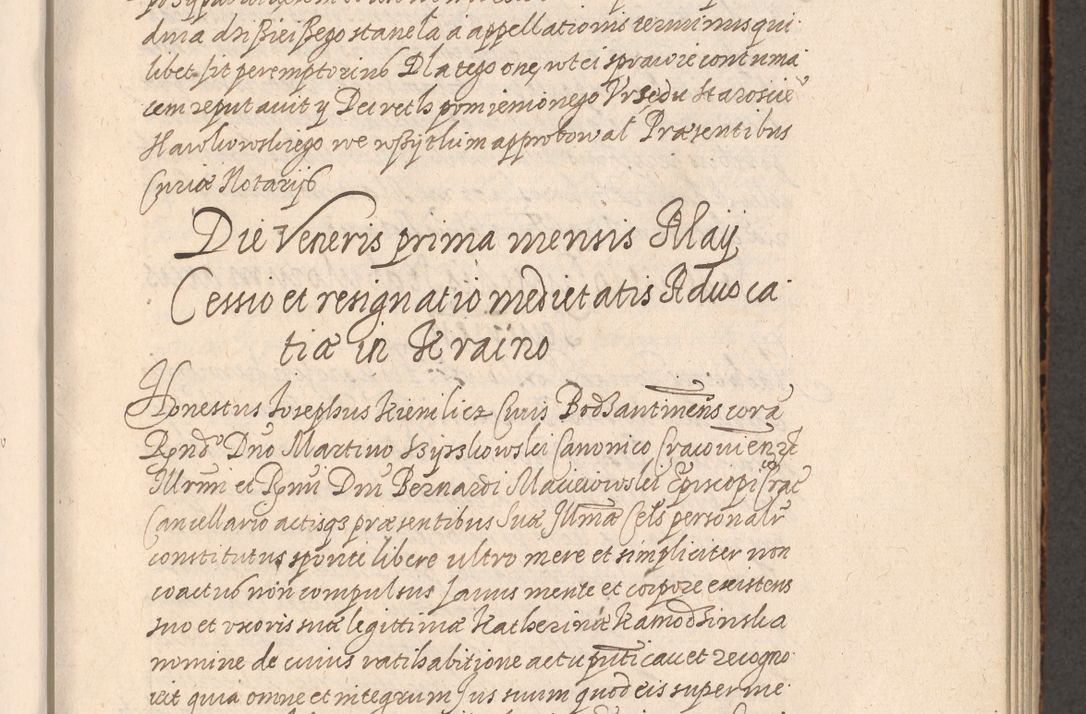 dnia dzisieiszego stanęła a appellationis terminus qui
libet sit peremptorius Dla tego onę wtei sprawie contuma
cem reputauit y Decreth pomienionego Vrzędu Starosciè
Hawłowskiego we wszytkim approbował Præsentibus
Curiæ Notarijs
Die Veneris prima mensis Maij
Cessio et resignatio medietatis Aduoca
tiæ in Kraino
Honestus Josephus Kienilicz Ciuis Bodzantinens̄ corā
Rṇdo Dnō Martino Szyszkowski Canonico Cracouien̄ et
Illrmi et Rṃi Dnī Bernardi Macieiowski Episcopi Crac
Cancellario actisqs præsentibus Suæ Illmæ Cels personalr̄
constitutus sponte libere ultro mere et simpliciter non
coactus non compulsus sanus mente et corpore existens
suo et vxoris suæ legittimæ Katherinæ Kamodzinska
nomine de cuius ratihabitione actu put̄i cauet recogno
uit quia omne et integrum Jus suum quod eis super me